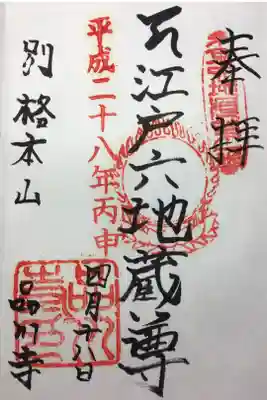 奉拝
江戸六地蔵尊
平成二十八年丙申
四月十八日
別格本山
品川寺